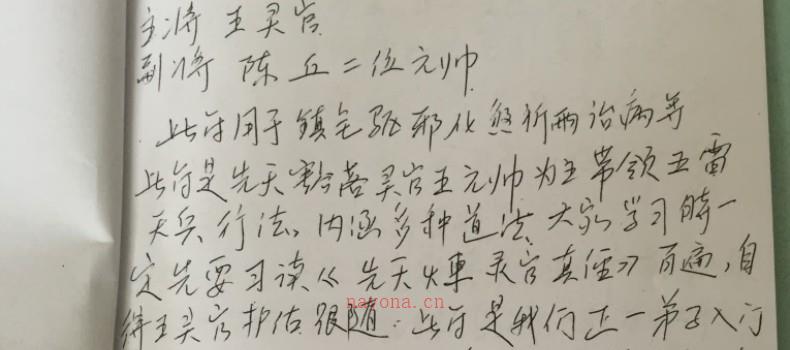 主将 王灵官
副将 陈 丘二位元帅
此符用于镇宅驱邪化煞祈雨治病等
此符是先天豁落灵官王元帅为主带领五雷
天兵行法。内涵多种道法 大家学习时一
定先要习读《先天火車灵官真经》百遍,自
得王灵官护佑跟随.此符是我们正一弟子入门
nayona.cn